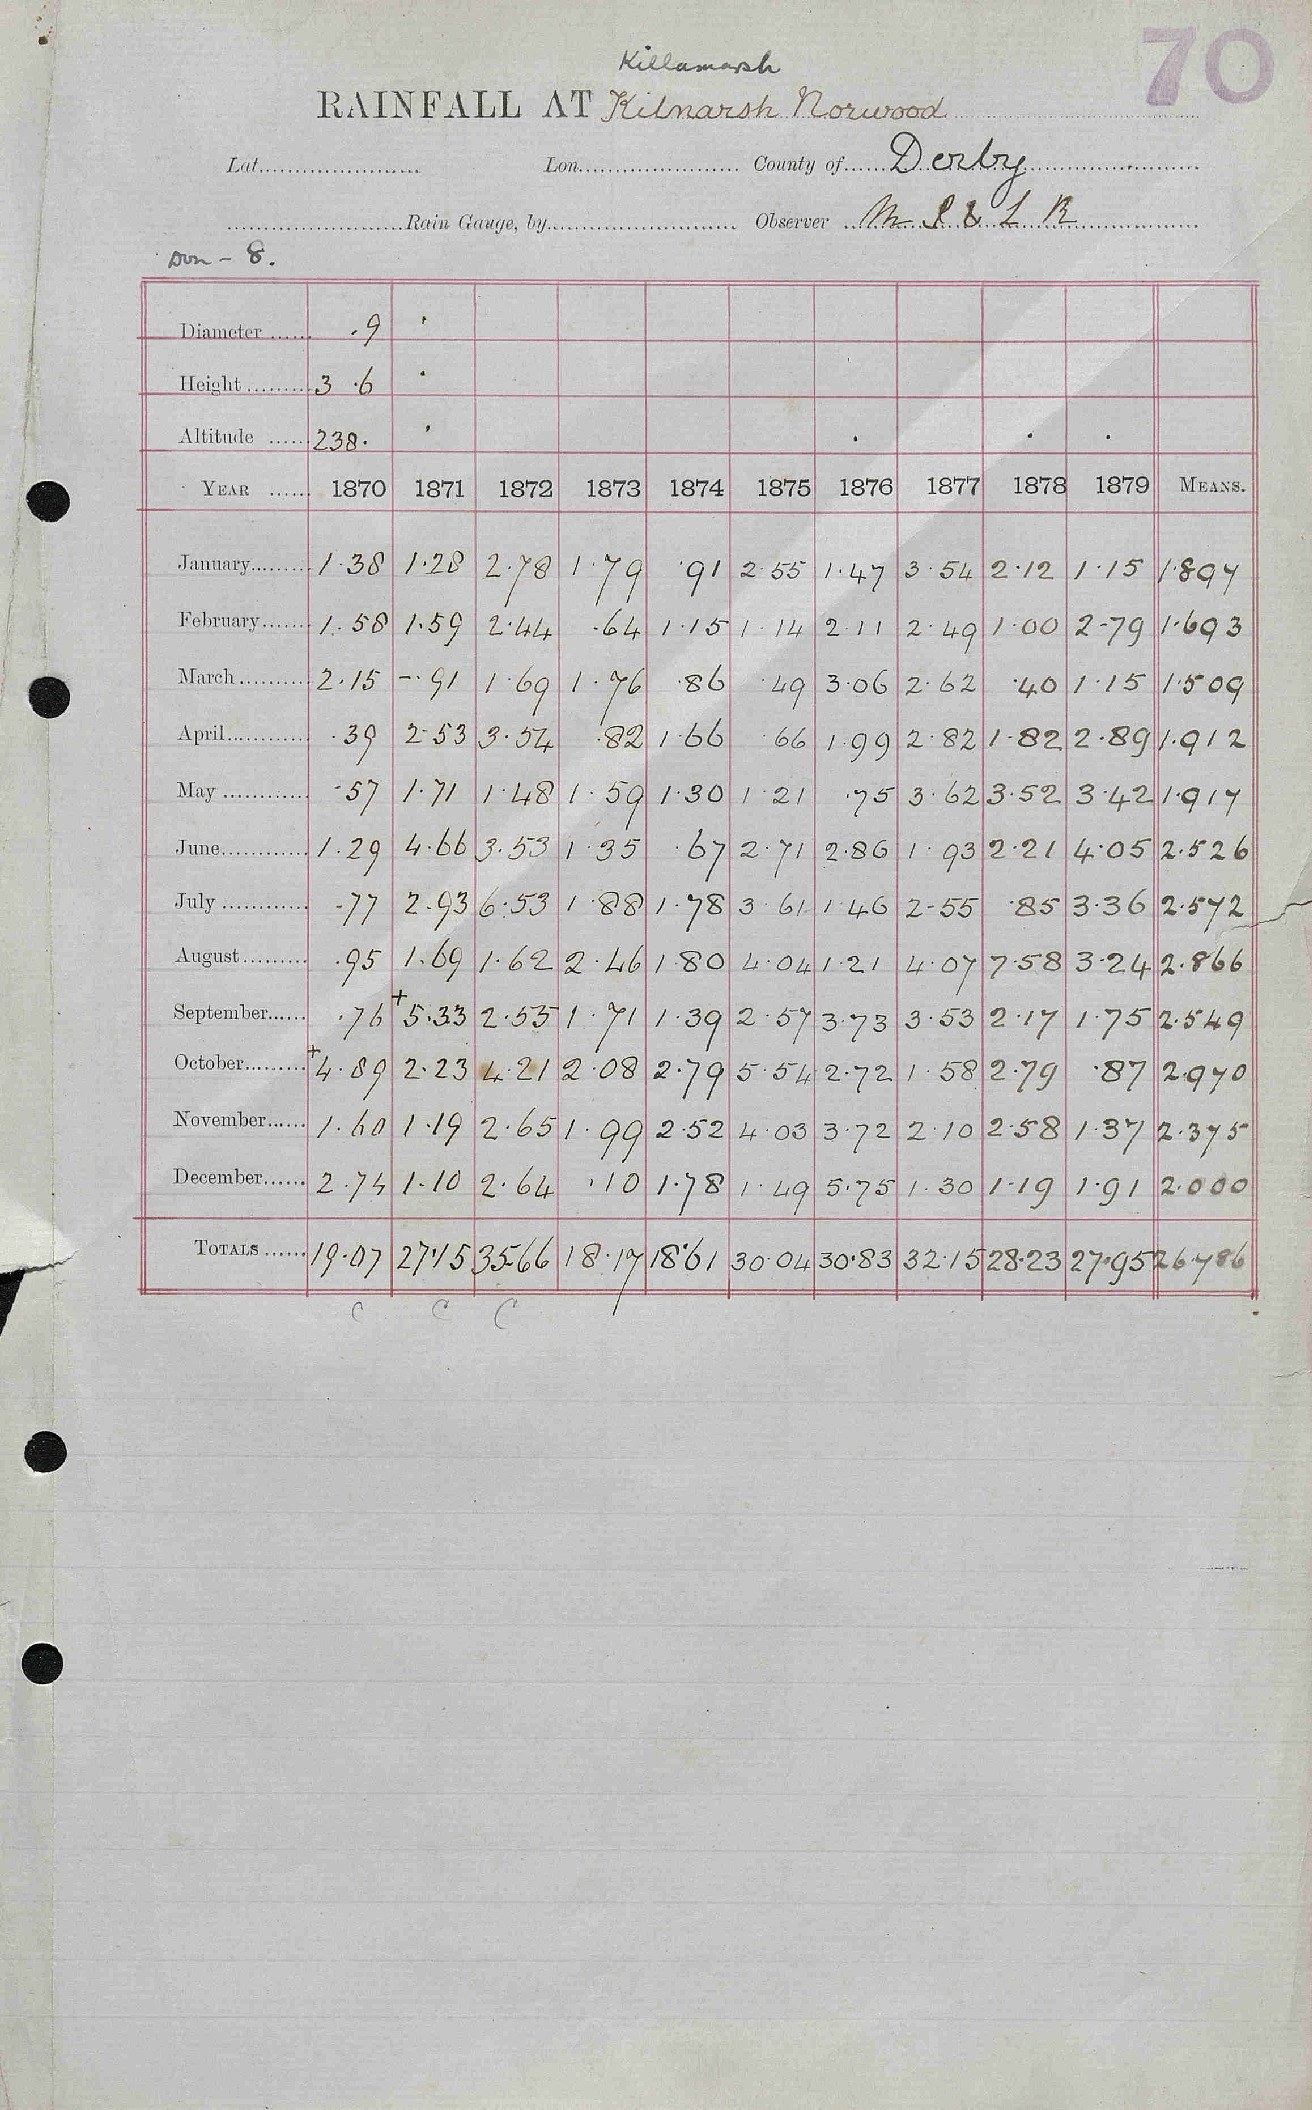 70
Killamarsh
RAINFALL AT Kilnarsh Norwood
Lat. Lon. County of Derby
Rain Gauge, by Observer M S & L R
Don - 8.
Diameter .9
Height 3 .6
Altitude 238.
YEAR 1870 1871 1872 1873 1874 1875 1876 1877 1878 1879 MEANS.
January 1.38 1.28 2.78 1.79 .91 2.55 1.47 3.54 2.12 1.15 1.897
February 1.58 1.59 2.44 .64 1.15 1.14 2.11 2.49 1.00 2.79 1.693
March 2.15 -.91 1.69 1.76 .86 .49 3.06 2.62 .40 1.15 1.509
April .39 2.53 3.54 .82 1.66 .66 1.99 2.82 1.82 2.89 1.912
May .57 1.71 1.48 1.59 1.30 1.21 .75 3.62 3.52 3.42 1.917
June 1.29 4.66 3.53 1.35 .67 2.71 2.86 1.93 2.21 4.05 2.526
July .77 2.93 6.53 1.88 1.78 3.61 1.46 2.55 .85 3.36 2.572
August .95 1.69 1.62 2.46 1.80 4.04 1.21 4.07 7.58 3.24 2.866
September .76 +5.33 2.55 1.71 1.39 2.57 3.73 3.53 2.17 1.75 2.549
October +4.89 2.23 4.21 2.08 2.79 5.54 2.72 1.58 2.79 .87 2.970
November 1.60 1.19 2.65 1.99 2.52 4.03 3.72 2.10 2.58 1.37 2.375
December 2.74 1.10 2.64 .10 1.78 1.49 5.75 1.30 1.19 1.91 2.000
TOTALS 19.07 27.15 35.66 18.17 18.61 30.04 30.83 32.15 28.23 27.95 26.786
C C C